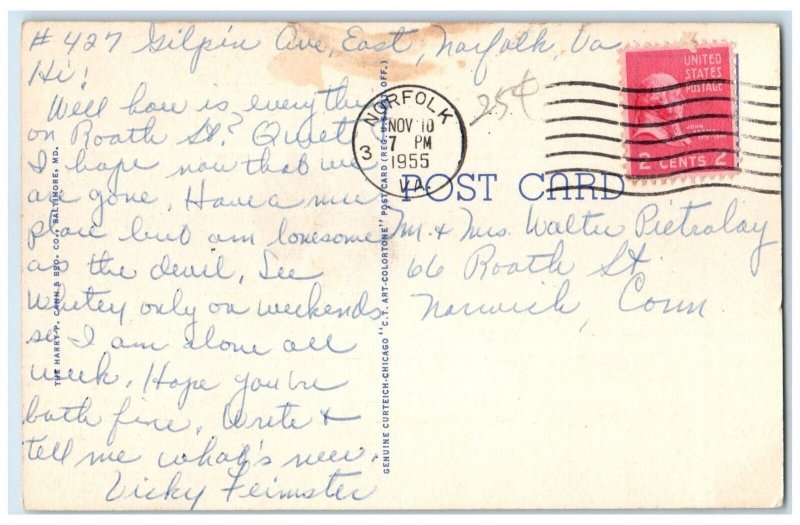 # 427 Gilpin Ave, East, Norfolk, Va
Hi!
Well how is everything
on Roath St? Quiet
I hope now that we
are gone. Have a nice
place but am lonesome
as the devil. See
only on weekends
so I am alone all
week. Hope you're
both fine. Write &
tell me what's new.
Vicky Feimster
THE HARRY P. CANN & BRO. CO., BALTIMORE, MD.
GENUINE CURTEICH-CHICAGO "C.T. ART-COLORTONE" POST CARD (REG. U.S. PAT. OFF.)
NORFOLK
NOV 10
7 PM
1955
3
VA.
25¢
UNITED
STATES
POSTAGE
2 CENTS 2
POST CARD
Mr. & Mrs. Walter Pietralay
66 Roath St.
Norwich, Conn